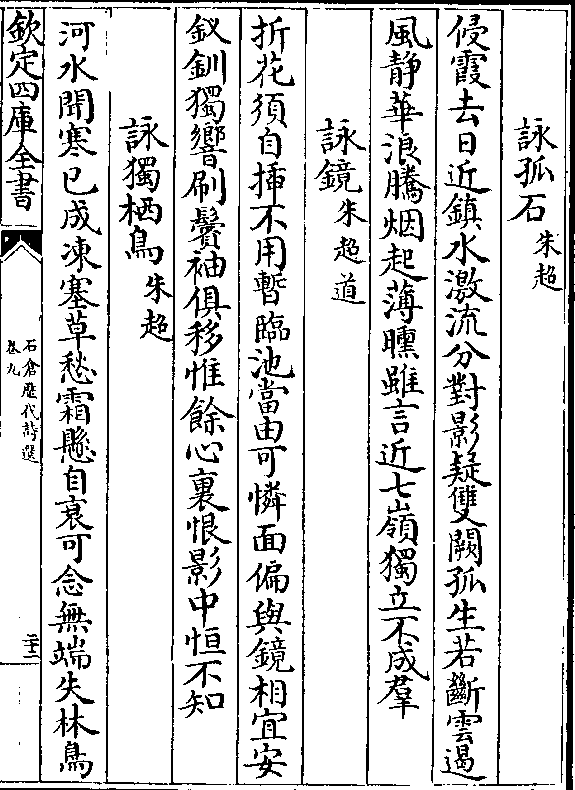 詠孤石 朱超
侵霞去日近鎮水激流分對影疑雙闕孤生若斷雲遏
風靜華浪騰烟起薄曛雖言近七嶺獨立不成羣
詠鏡 朱超道
折花須自插不用暫臨池當由可憐面偏與鏡相宜安
釵釧獨響刷鬢袖俱移惟餘心裏恨影中恒不知
詠獨栖鳥 朱超
河水聞寒已成凍塞草愁霜懸自衰可念無端失林鳥
欽定四庫全書
石倉歴代詩選
卷九
二十三